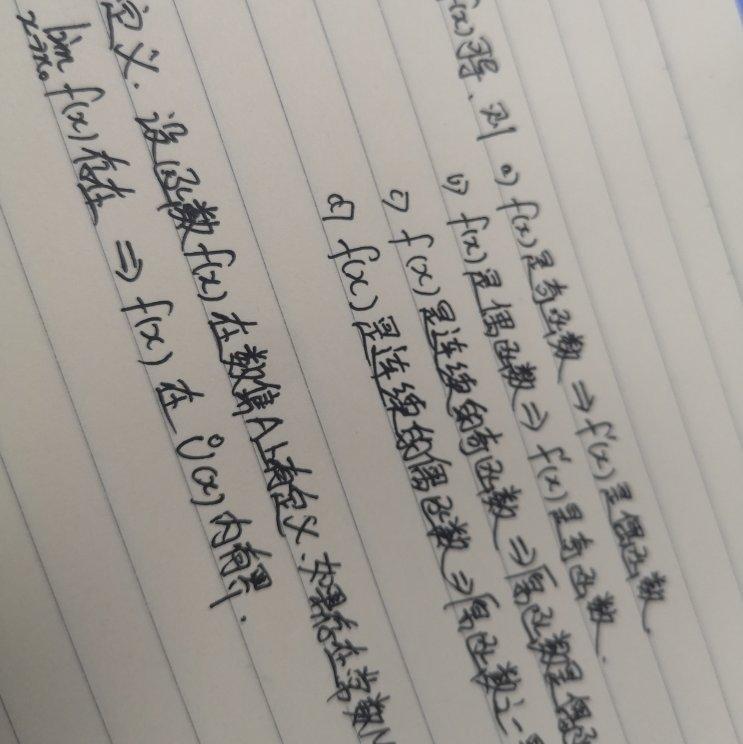 f(x)可导,则 a) f(x)是奇函数 ⇒ f'(x)是偶函数.
b) f(x)是偶函数 ⇒ f'(x)是奇函数.
c) f(x)是连续的奇函数 ⇒ 原函数是偶函
d) f(x)是连续的偶函数 ⇒ 原函数之一是
定义.设函数f(x)在数集A上有定义.如果存在常数M
lim x→x₀ f(x)存在 ⇒ f(x)在Ů(x)内有界.